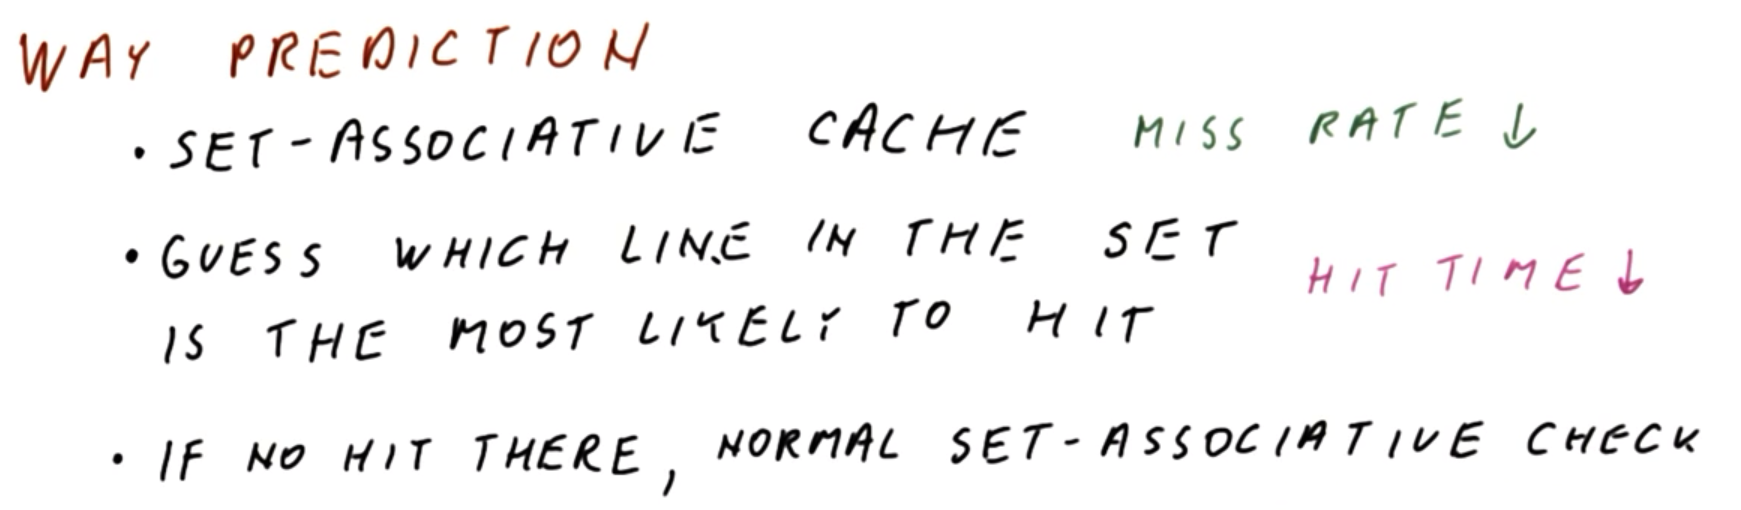 WAY PREDICTION
• SET-ASSOCIATIVE CACHE MISS RATE ↓
• GUESS WHICH LINE IN THE SET
HIT TIME ↓
IS THE MOST LIKELY TO HIT
• IF NO HIT THERE, NORMAL SET-ASSOCIATIVE CHECK